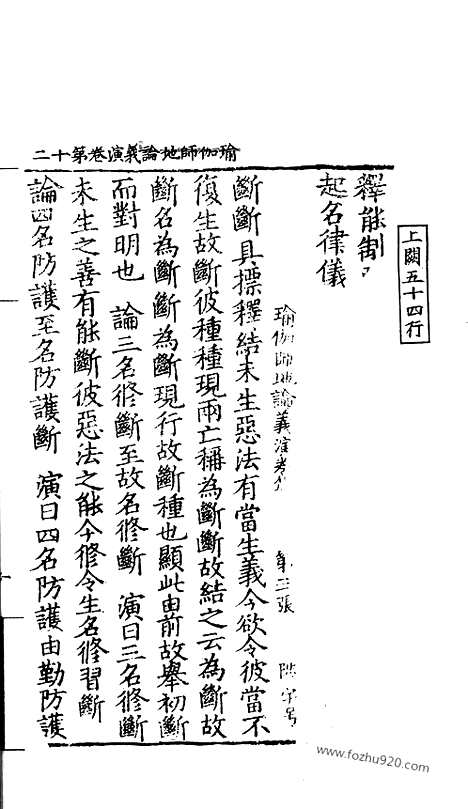 上闕五十四行
釋能制
起名律儀
瑜伽師地論義演卷 第三張
斷斷具標釋結未生惡法有當生義今欲令彼當不
復生故斷彼種種現兩亡稱為斷斷故結之云為斷故
斷名為斷斷為斷現行故斷種也顯此由前故舉初斷
而對明也 論三名修斷至故名修斷 演曰三名修斷
未生之善有能斷彼惡法之能今修令生名修習斷
論四名防護至名防護斷 演曰四名防護由勤防護
瑜伽師地論義演卷第十二
www.fozhu920.com